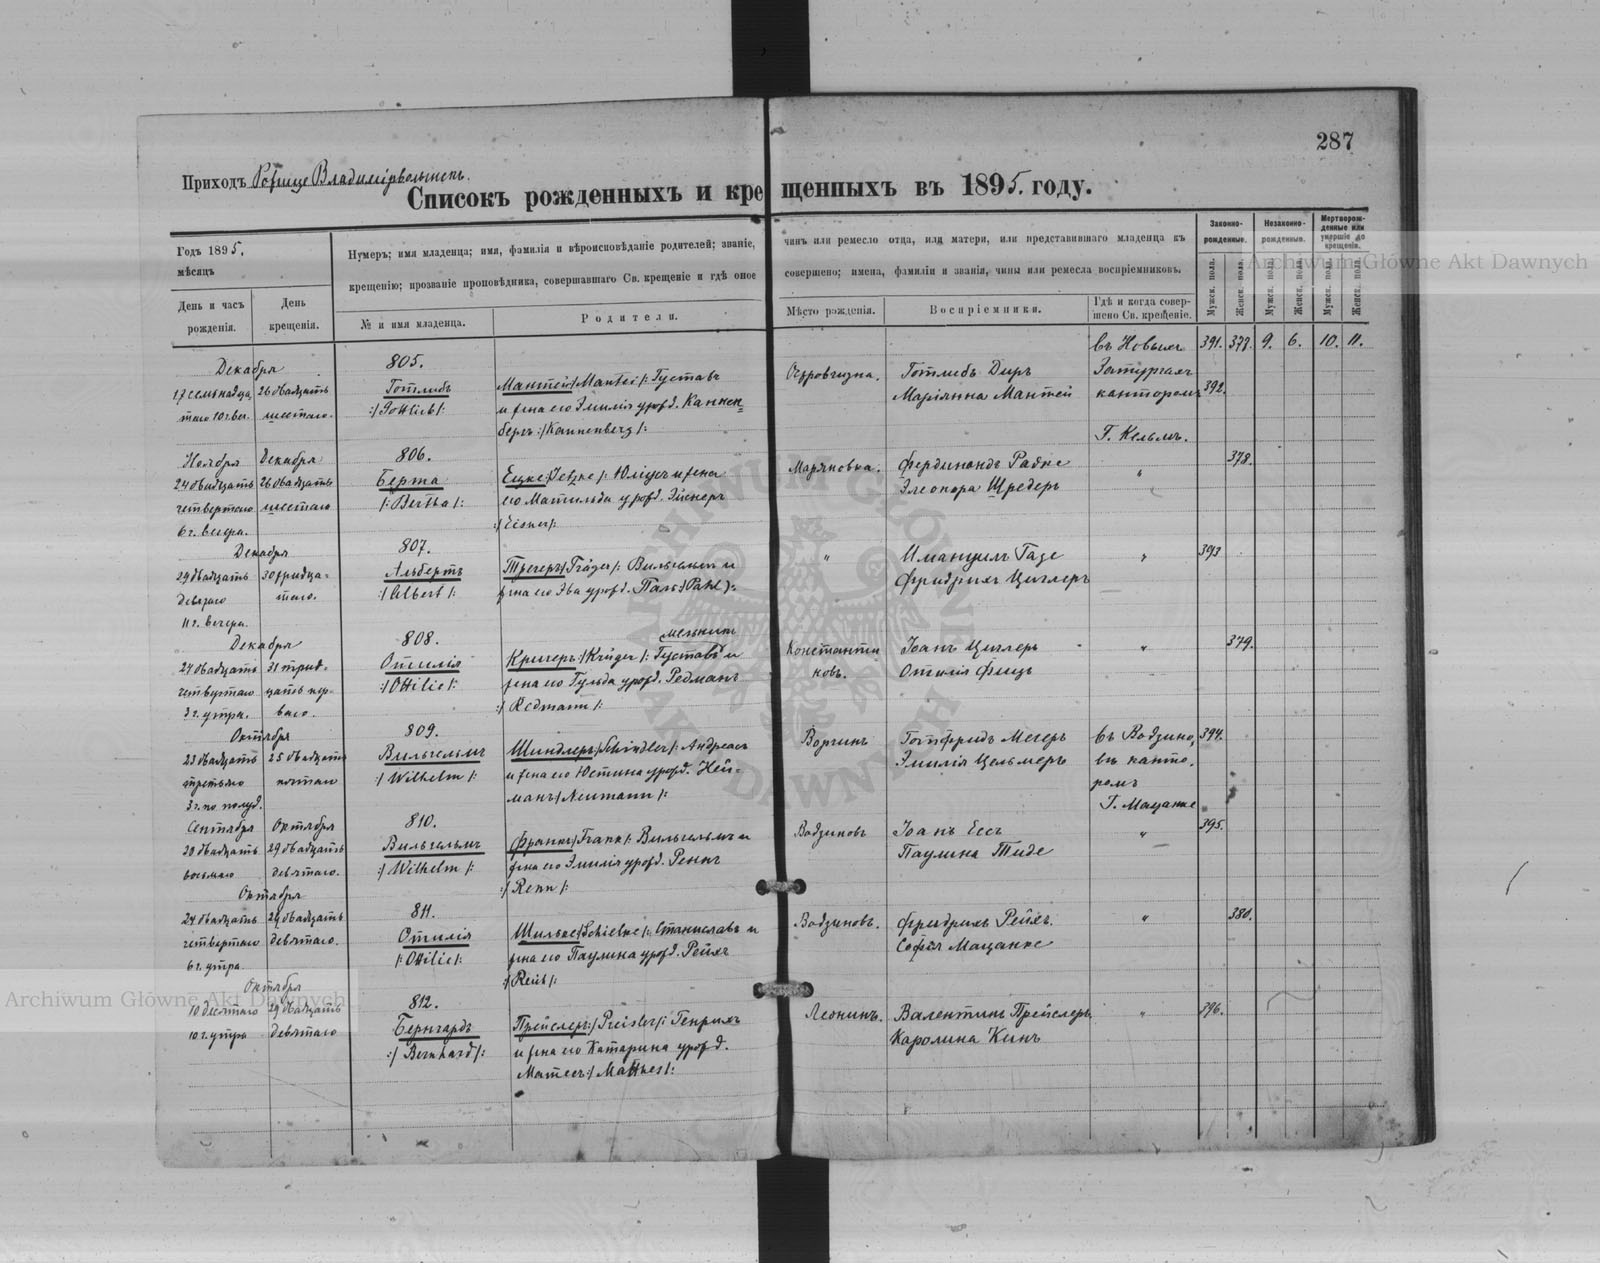 287
Приходъ Рожище Владиміръволынск.
Списокъ рожденныхъ и крещенныхъ въ 1895. году.
Годъ 1895.
мѣсяцъ
День и часъ рожденія.
День крещенія.
Нумеръ; имя младенца; имя, фамилія и вѣроисповѣданіе родителей; званіе, чинъ или ремесло отца, или матери, или представившаго младенца къ
крещенію; прозваніе проповѣдника, совершавшаго Св. крещеніе и гдѣ оное совершено; имена, фамиліи и званія, чины или ремесла воспріемниковъ.
№ и имя младенца.
Родители.
Мѣсто рожденія.
Воспріемники.
Гдѣ и когда совершено Св. крещеніе.
Законнорожденные.
Незаконнорожденные.
Мертворожденные или умершіе до крещенія.
Мужск. пола.
Женск. пола.
Мужск. пола.
Женск. пола.
Мужск. пола.
Женск. пола.
391. 377. 9. 6. 10. 11.
Декабря
17 семнадца
таго 10 ч. веч.
26 двадцать
шестаго.
805.
Готлибъ
:/Gottlieb/:
Мантей/Mantei/: Густавъ
и жена его Эмилія урожд. Каннен=
бергъ:/Kannenberg/:
Островчизна.
Готлибъ Диръ
Маріянна Мантей
въ Новыхъ
Затурцахъ
канторомъ
Г. Кельмъ.
392.
Ноября
24 двадцать
четвертаго
6 ч. вечера.
Декабря
26 двадцать
шестаго
806.
Берта
/:Bertha/:
Ецке/Jetzke/: Юліусъ и жена
его Матильда урожд. Эйснеръ
:/Eisner/:
Маряновка.
Фердинандъ Радке
Элеонора Шредеръ
"
378.
Декабря
29 двадцать
девятаго
11 ч. вечера.
30 тридца=
таго.
807.
Альбертъ
:/Albert/:
Трегеръ/Träger/: Вильгельм и
жена его Эва урожд. Паль/Pahl/:
"
Имануилъ Газе
Фридрихъ Циглеръ
"
393
Декабря
24 двадцать
четвертаго
3 ч. утра.
31 трид=
цать пер=
ваго.
808.
Отилія
:/Ottilie/:
мельник
Кригеръ:/Krüger/: Густавъ и
жена его Гульда урожд. Редманъ
:/Redmann/:
Константи
новъ.
Іоанъ Циглеръ
Отилія Фицъ
"
379.
Октября
23 двадцать
третьяго
3 ч. по полуд.
25 двадцать
пятаго
809.
Вильгельмъ
:/Wilhelm/:
Шиндлеръ:/Schindler/: Андреасъ
и жена его Юстина урожд. Ней=
манъ/Neumann/:
Ворчинъ
Готфридъ Мегеръ
Эмилія Цельмеръ
въ Водзино,
въ канто,
ромъ
Г. Мацанке
394.
Сентября
28 двадцать
восьмаго
Октября
29 двадцать
девятаго.
810.
Вильгельмъ
:/Wilhelm/:
Франкъ/Frank/: Вильгельмъ и
жена его Эмилія урожд. Реннъ
:/Renn/:
Водзиновъ
Іоанъ Ессъ
Паулина Тиде
"
395.
Октября
24 двадцать
четвертаго
6 ч. утра
29 двадцать
девятаго.
811.
Отилія
/:Ottilie/:
Шильке/Schielke/: Станиславъ и
жена его Паулина урожд. Рейхъ
:/Reich/:
Водзиновъ.
Фридрихъ Рейхъ.
Софія Мацанке
"
380.
Октября
10 десятаго
10 ч. утра
29 двадцать
девятаго
812.
Бернгардъ
:/Bernhard/:
Прейслеръ:/Preisler/: Генрихъ
и жена его Катарина урожд.
Матесъ:/Mattes/:
Леонинъ.
Валентинъ Прейслеръ
Каролина Кинъ
"
396.
Archiwum Główne Akt Dawnych
Archiwum Główne Akt Dawnych
ARCHIWUM GŁÓWNE
AKT DAWNYCH